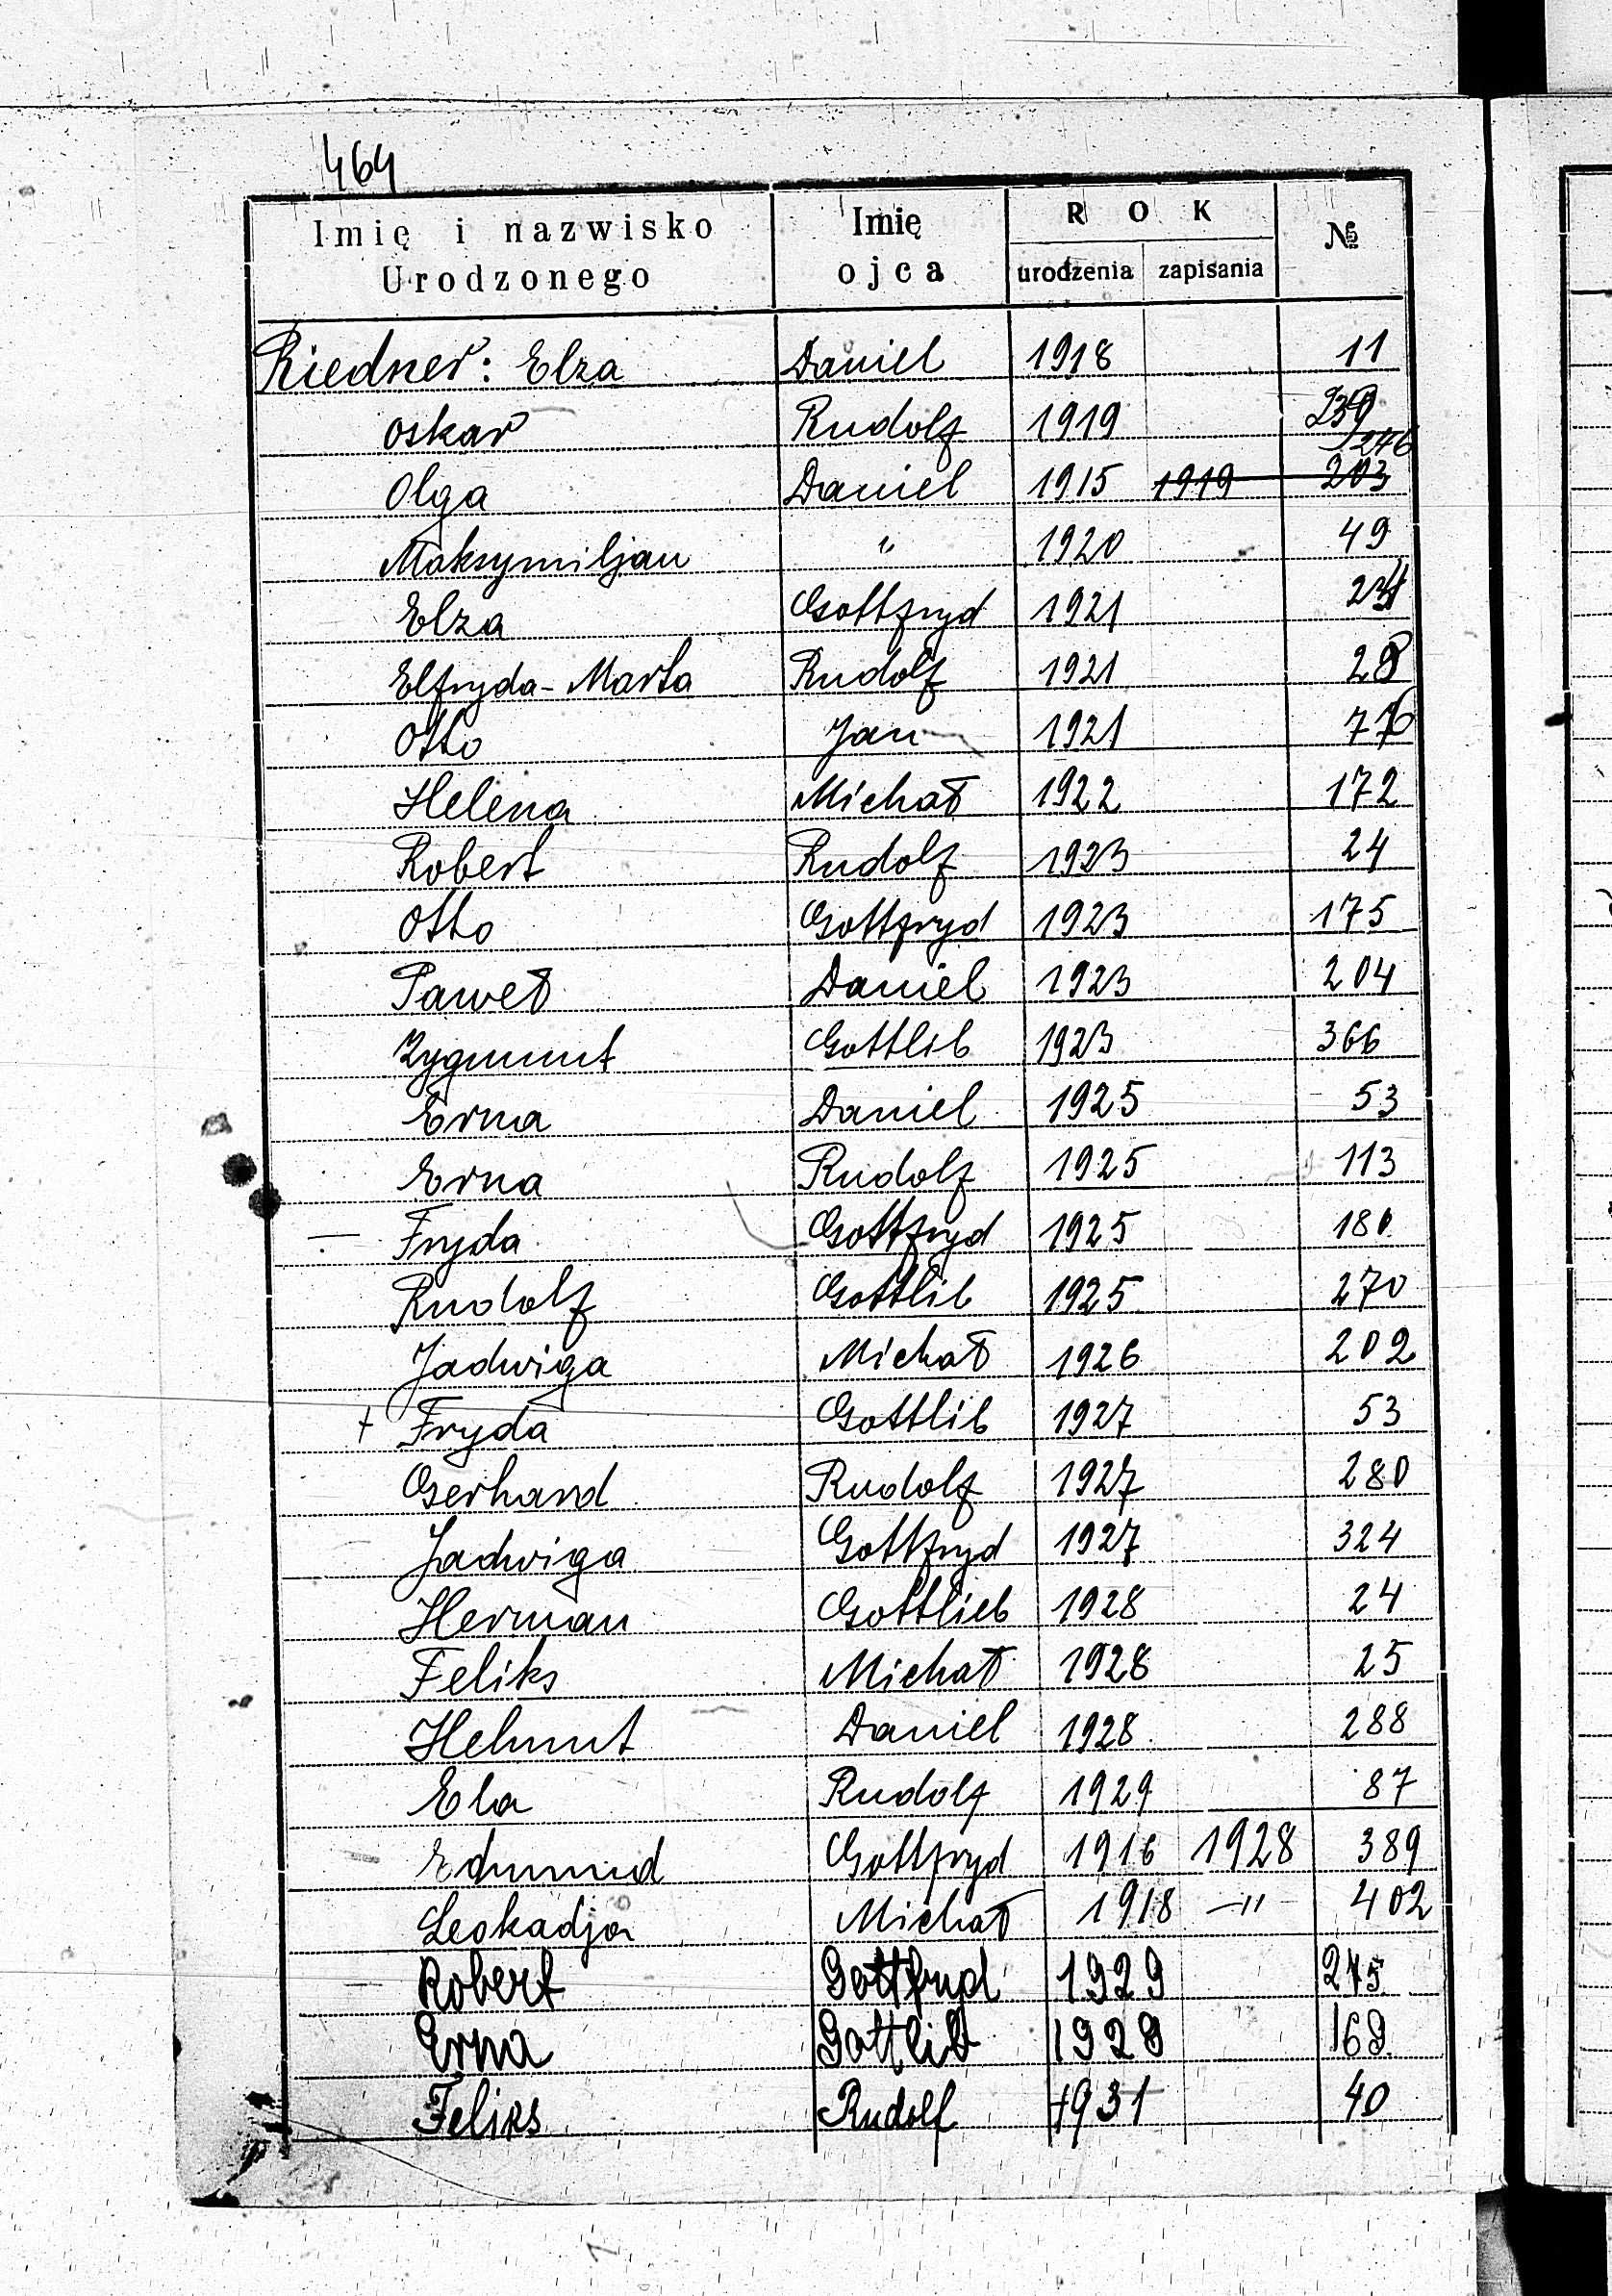 464
Imię i nazwisko Urodzonego Imię ojca ROK urodzenia zapisania №
Riedner: Elza Daniel 1918 11
Oskar Rudolf 1919
246
Olga Daniel 1915 1919 203
Maksymiljan " 1920 49
Elza Gottfryd 1921
Elfryda-Marta Rudolf 1921 28
Otto Jan 1921
Helena Michał 1922 172
Robert Rudolf 1923 24
Otto Gottfryd 1923 175
Paweł Daniel 1923 204
Zygmunt Gottlib 1923 366
Erna Daniel 1925 53
Erna Rudolf 1925 113
Fryda Gottfryd 1925 180
Rudolf Gottlib 1925 270
Jadwiga Michał 1926 202
+ Fryda Gottlib 1927 53
Gerhard Rudolf 1927 280
Jadwiga Gottfryd 1927 324
Herman Gottlieb 1928 24
Feliks Michał 1928 25
Helmut Daniel 1928 288
Ela Rudolf 1929 87
Edmund Gottfryd 1916 1928 389
Leokadja Michał 1918 –"– 402
Robert Gottfryd 1929
Erna Gottlib 1929 169
Feliks Rudolf 1931 40